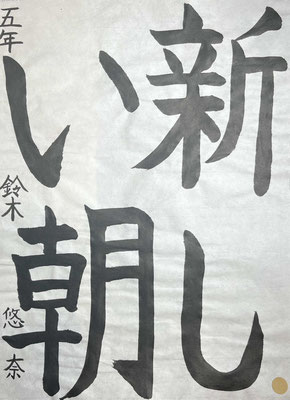 新し
い朝
五年 鈴木 悠奈